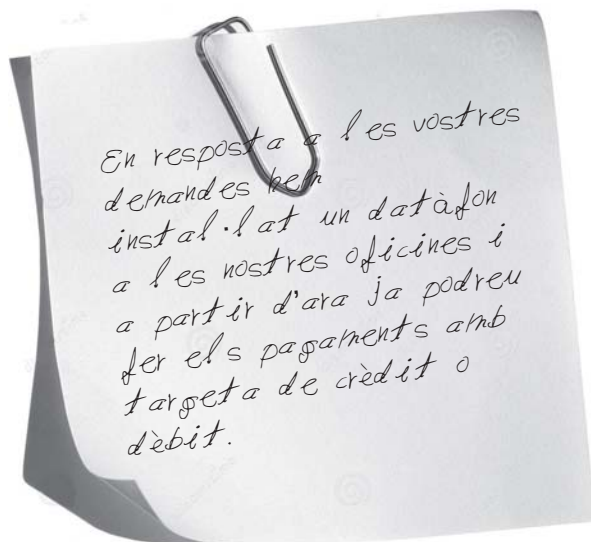 En resposta a les vostres
demandes hem
instal·lat un datàfon
a les nostres oficines i
a partir d'ara ja podreu
fer els pagaments amb
targeta de crèdit o
dèbit.